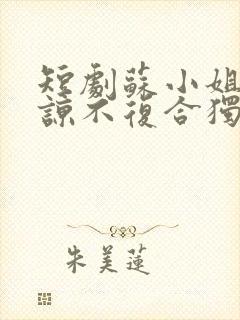 短劇蘇小姐
諒不復合獨
朱美蓮